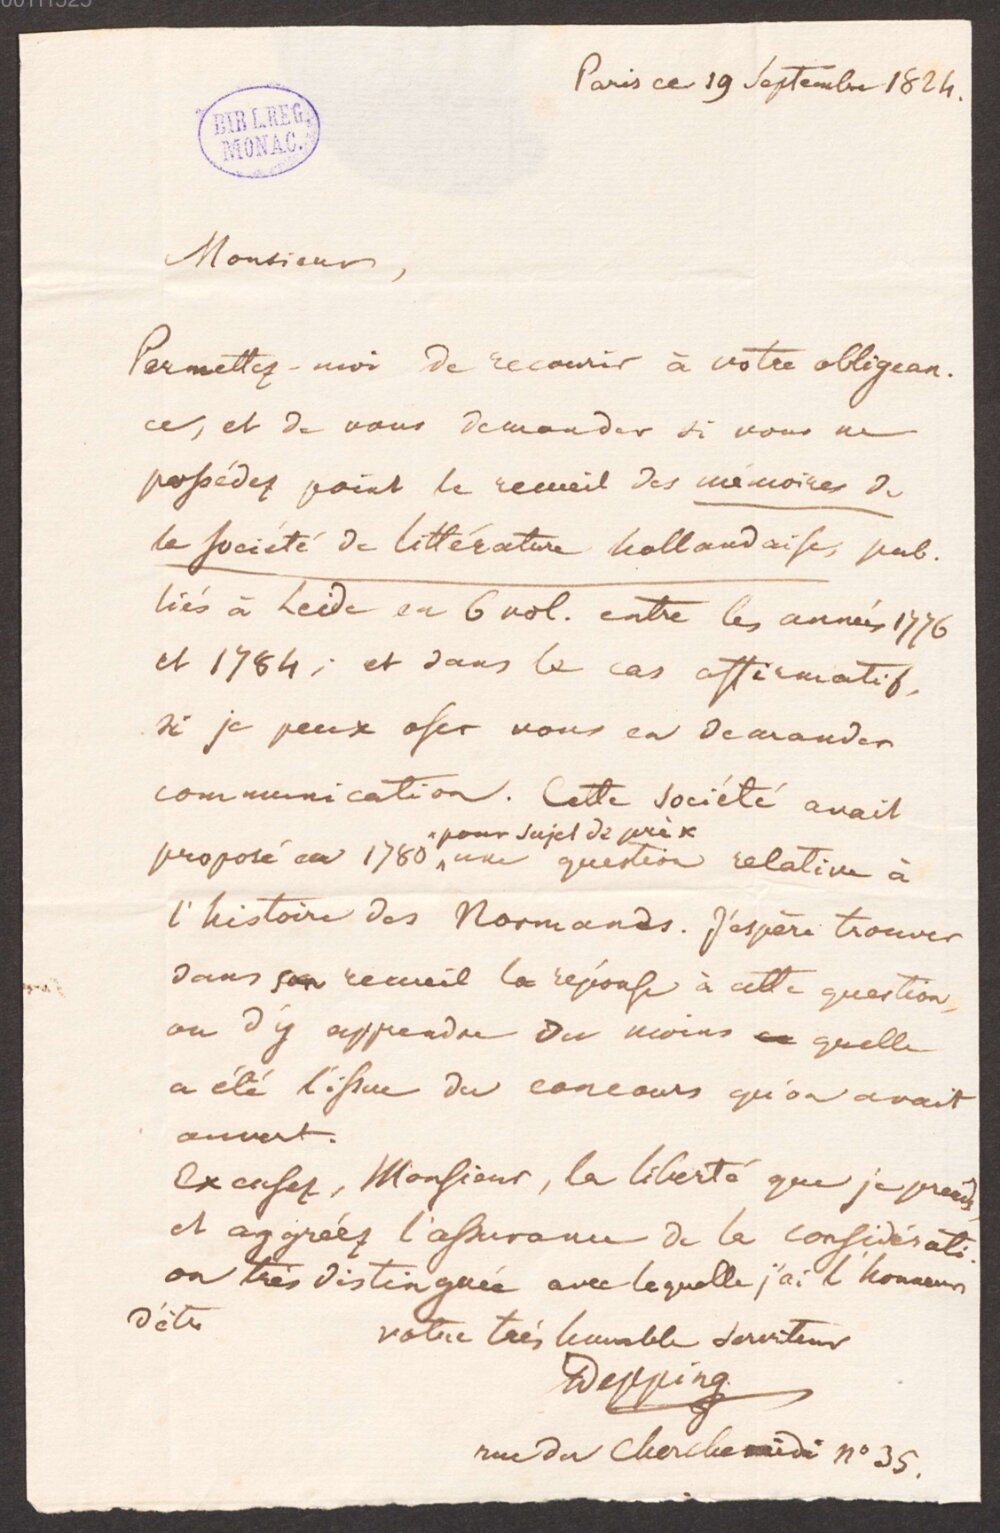 00111525
Paris ce 19 Septembre 1824.
BIBL.REG.
MONAC.
Monsieur,
Permettez-moi de recourir à votre obligean.
ce, et de vous demander si vous ne
possédez point le recueil des mémoires de
la société de littérature hollandaise, pub.
liés à Leide en 6 vol. entre les années 1776
et 1784; et dans le cas affirmatif,
si je peux oser vous en demander
communication. Cette société avait
pour sujet de prix
proposé en 1780 une question relative à
l'histoire des Normands. J'espère trouver
dans son recueil la réponse à cette question,
ou d'y apprendre du moins quelle
a été l'issue du concours qu'on avait
ouvert.
Excusez, Monsieur, la liberté que je prends,
et aggréez l'assurance de la considérati.
on très distinguée avec laquelle j'ai l'honneur
d'être votre très humble serviteur
Depping
rue du Cherchemidi n° 35.